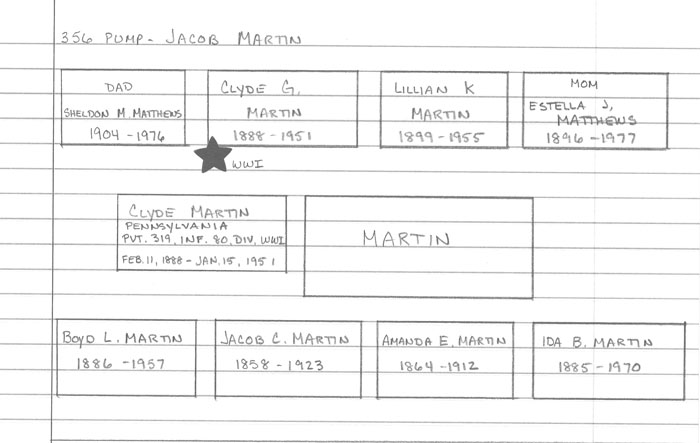 356 PUMP - JACOB MARTIN
DAD
SHELDON M. MATTHEWS
1904 - 1976
CLYDE G.
MARTIN
1888 - 1951
WWI
LILLIAN K
MARTIN
1899 - 1955
MOM
ESTELLA J.
MATTHEWS
1896 - 1977
CLYDE MARTIN
PENNSYLVANIA
PVT. 319, INF. 80, DIV, WWI
FEB. 11, 1888 - JAN. 15, 1951
MARTIN
BOYD L. MARTIN
1886 - 1957
JACOB C. MARTIN
1858 - 1923
AMANDA E. MARTIN
1864 - 1912
IDA B. MARTIN
1885 - 1970